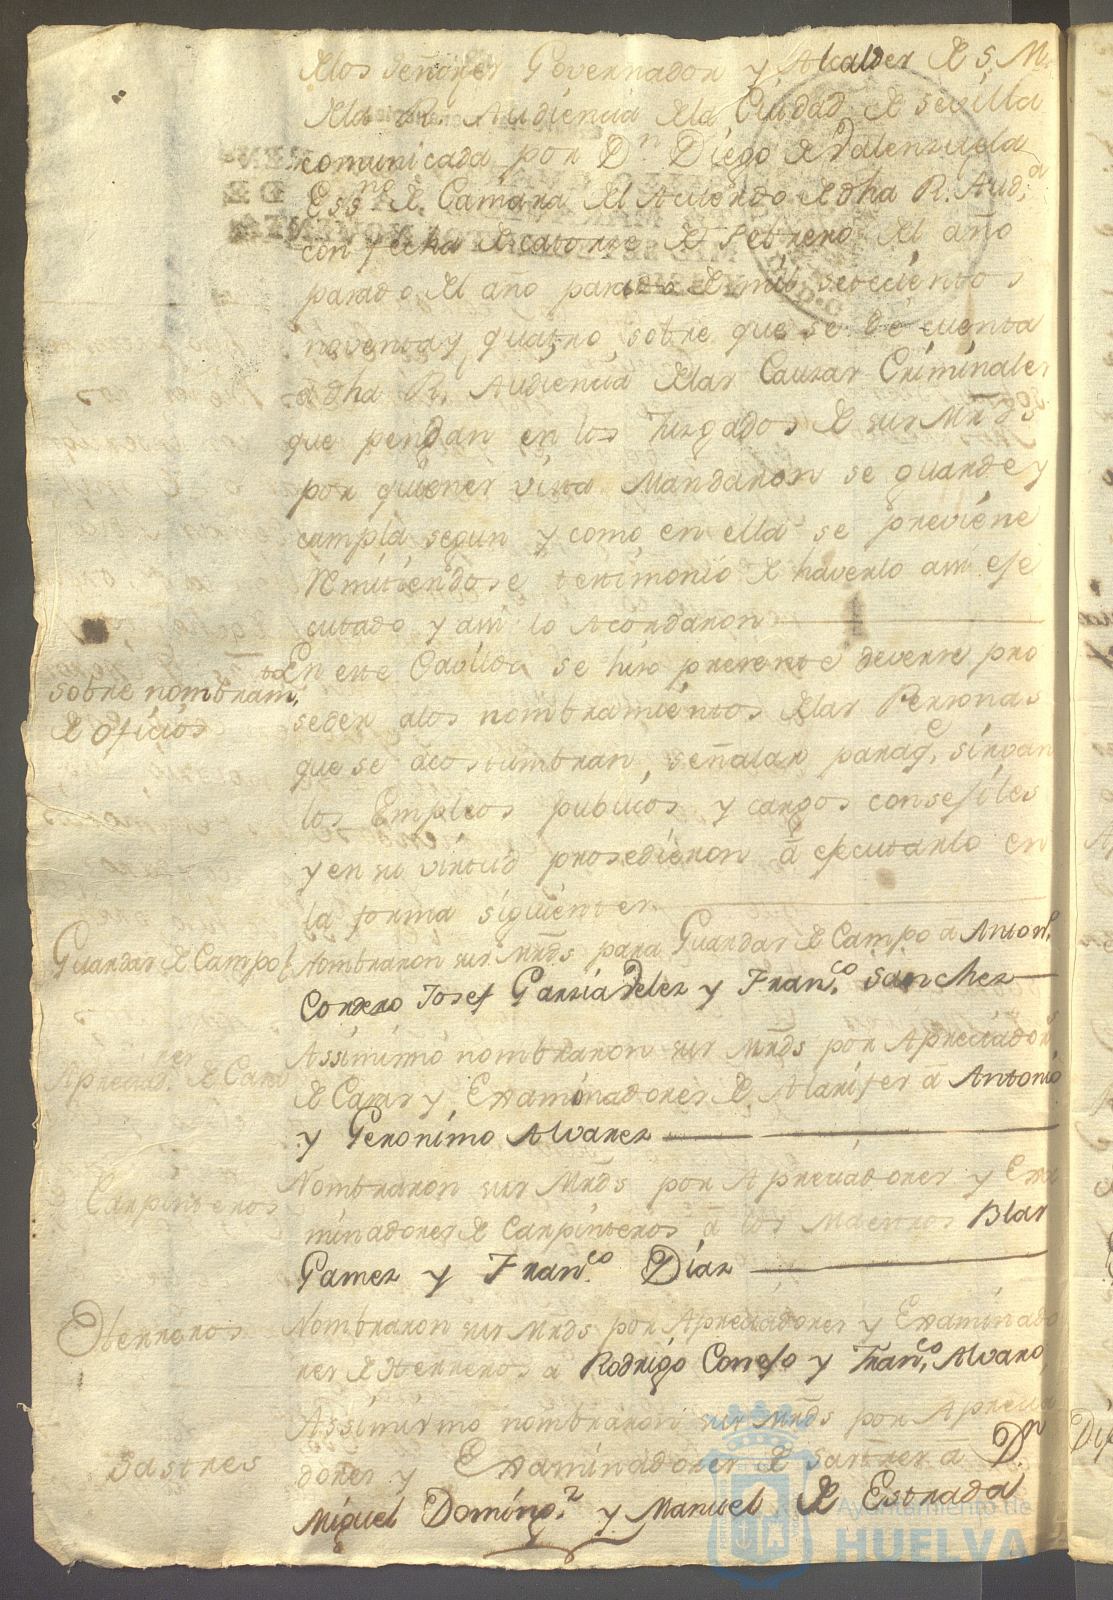 delos señores Governador y Alcaldes de S. M.
dela R. Audiencia dela Ciudad de sevilla
comunicada por Dn Diego de Valenzuela
Essno de Camara del Acuerdo de dha R. Auda
con fecha de catorce de Febrero del año
pasado del año pasado de mil setecientos
noventa y quatro sobre que se dé cuenta
a dha R. Audiencia delas Causas Criminales
que pendan en los Juzgados de sus Mrds
por quienes vista Mandaron se guarde y
cumpla segun y como en ella se previene
Remitiendose testimonio de haverlo asi eje
cutado y asi lo Acordaron
sobre nombramto
de oficios
En este Cavildo se hizo presente deverse pro
seder alos nombramientos delas Personas
que se acostumbran, señalar paraqe sirvan
los Empleos publicos y cargos consejiles
y en su virtud prosedieron â ejecutarlo en
la forma siguiente
Guardas de Campo
Nombraron sus Mrds para Guardas de Campo a Anton.
Cordero Josef Garsia Velez y Franco Sanchez
Apreciadres de Casas
Assimismo nombraron sus Mrds por Apreciadors
de Casas y Examinadores de Alarifes a Antonio
y Geronimo Alvarez
Carpinteros
Nombraron sus Mrds por Apreciadores y Exa
minadores de Carpinteros â los Maestros Blas
Gamez y Franco Diaz
Herreros
Nombraron sus Mrds por Apreciadores y Examinado
res de Herreros a Rodrigo Conejo y Franco Alvaro
Sastres
Assimismo nombraron sus Mrds por Aprecia
dores y Examinadores de Sastres a Dn
Miguel Domingz y Manuel de Estrada
Ayuntamiento de
HUELVA